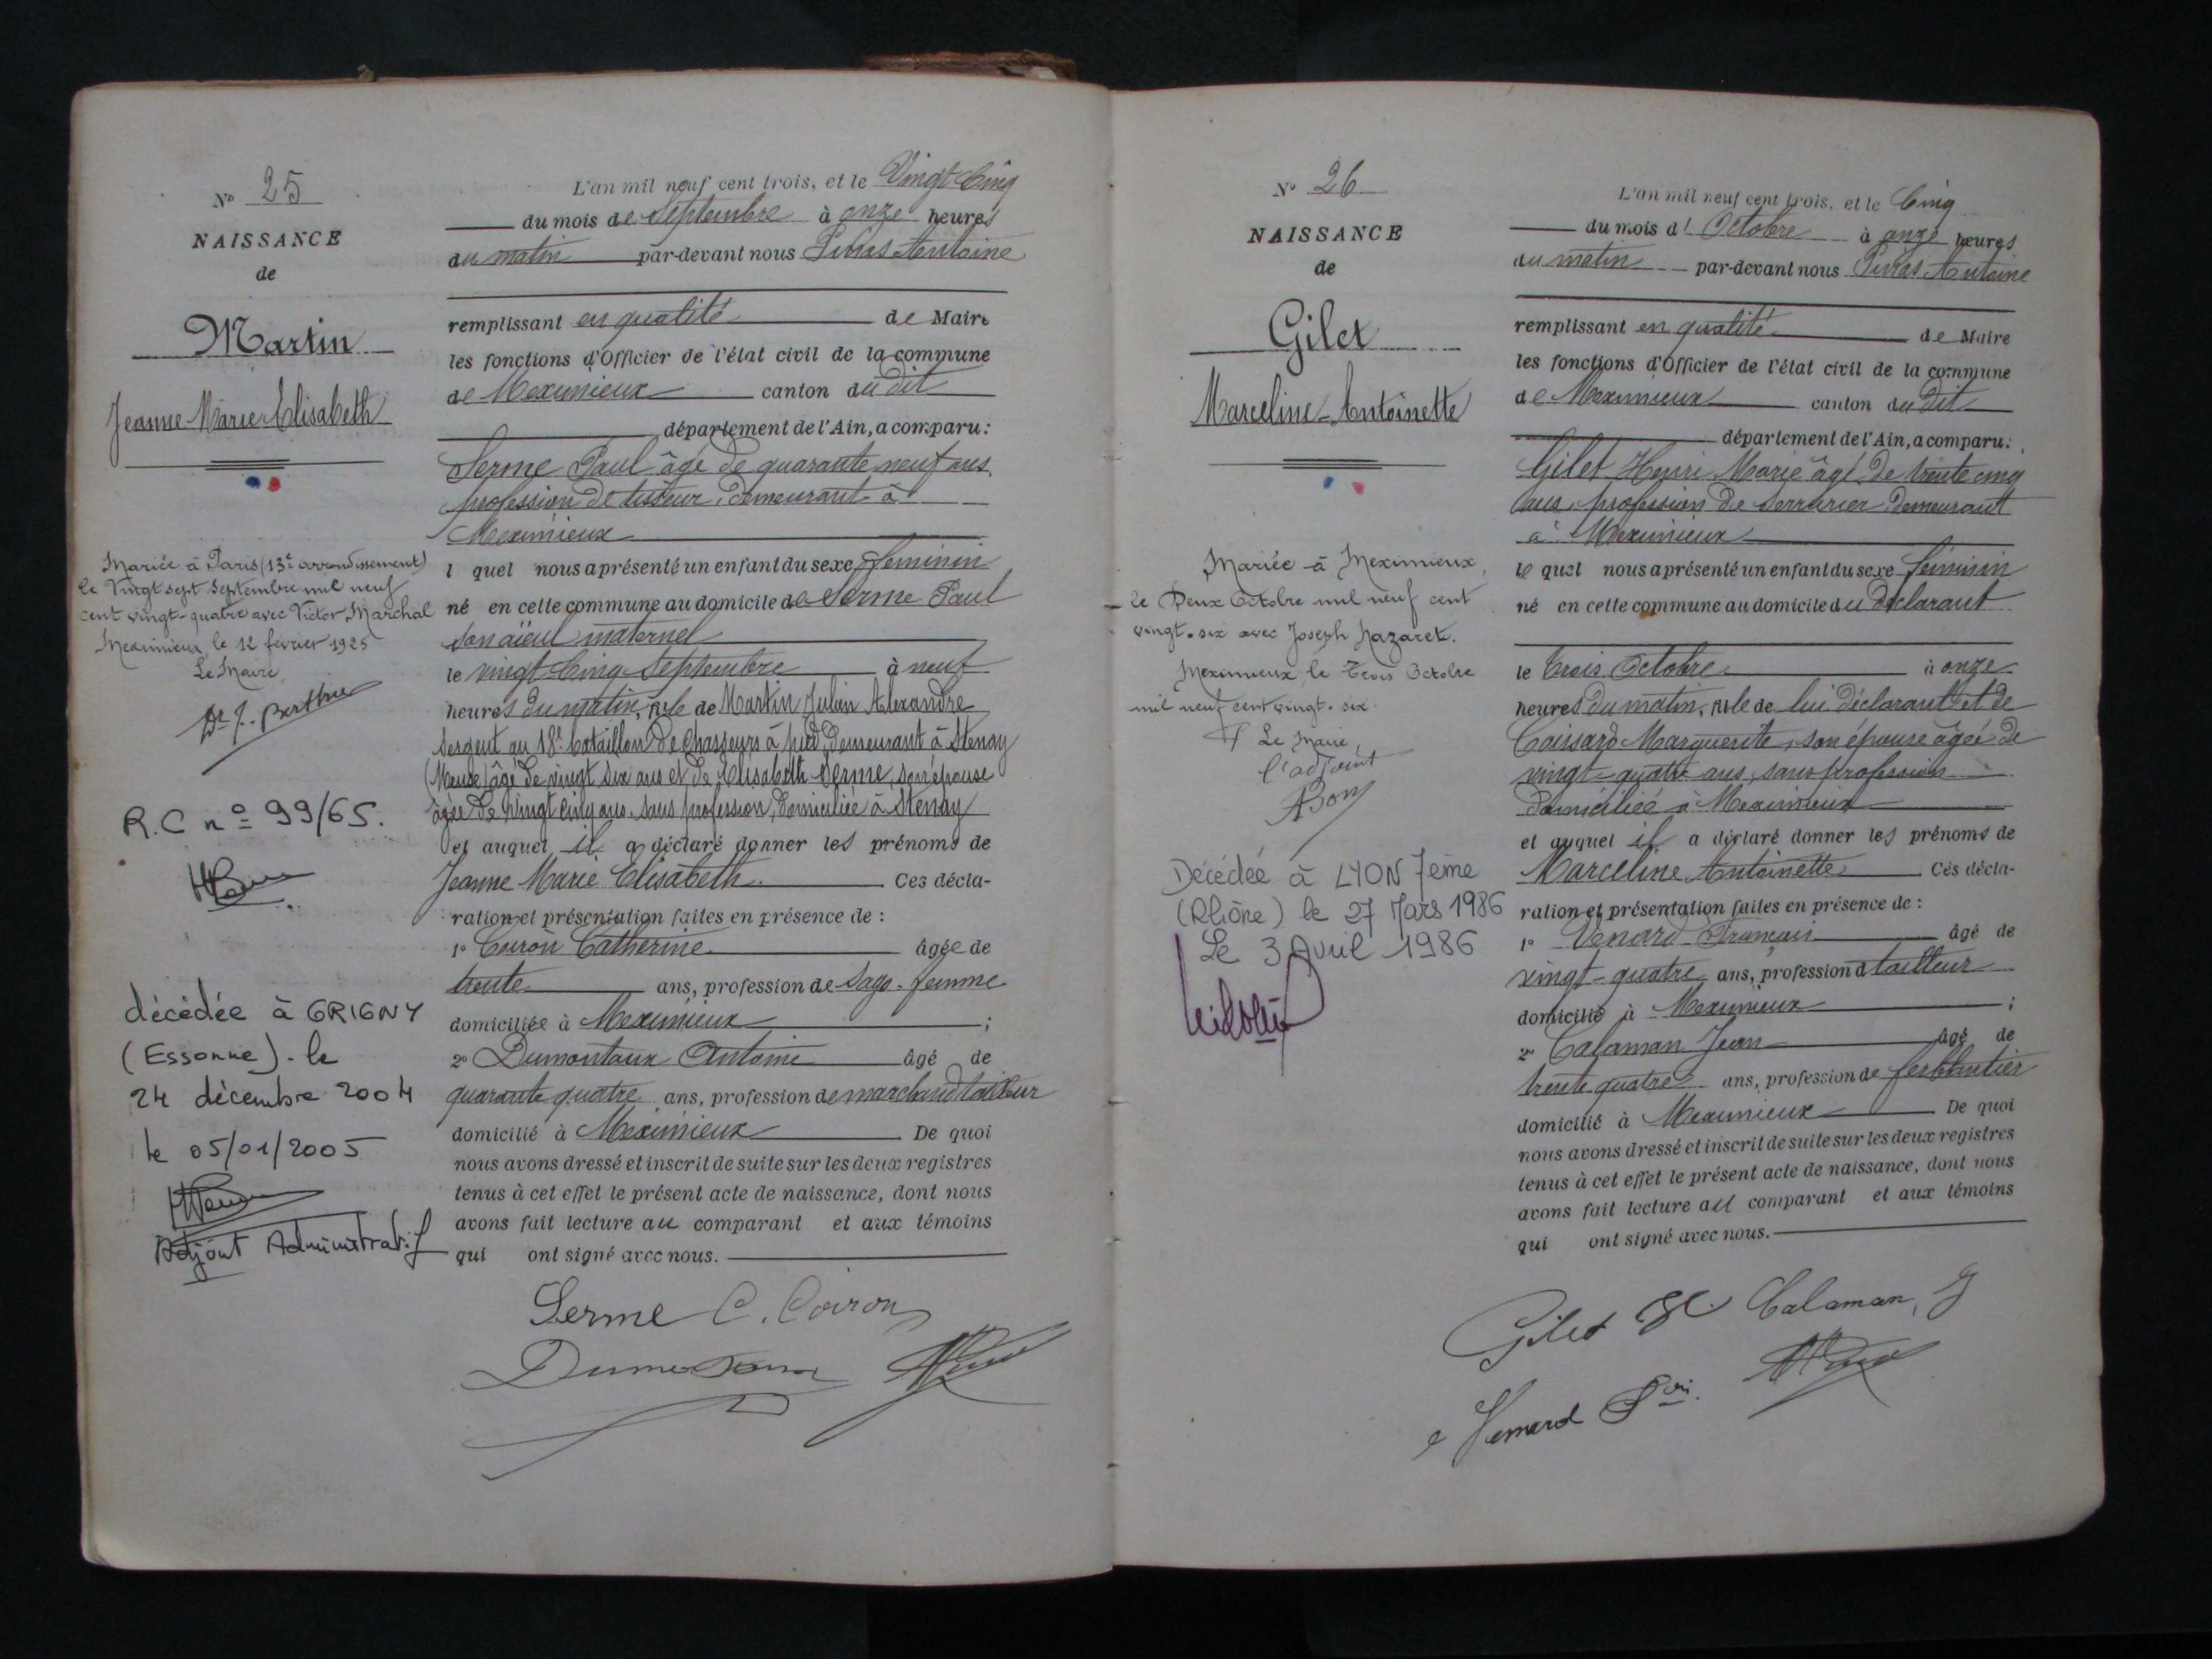 N° 25
NAISSANCE
de
Martin
Jeanne Marie Elisabeth
Mariée à Paris (13e arrondissement)
le Vingt sept Septembre mil neuf
cent vingt-quatre avec Victor Marchal
Meximieux, le 12 février 1925
Le Maire,
Dr J. Berthier
R.C n° 99/65.
décédée à GRIGNY
(Essonne). le
24 décembre 2004
le 05/01/2005
Adjoint Administratif
L'an mil neuf cent trois, et le Vingt Cinq
du mois de Septembre à onze heures
du matin par-devant nous Antoine
remplissant en qualité de Maire
les fonctions d'Officier de l'état civil de la commune
de Meximieux canton du dit
département de l'Ain, a comparu :
Serme Paul âgé de quarante neuf ans
profession de tisseur, demeurant à
Meximieux
l quel nous a présenté un enfant du sexe feminin
né en cette commune au domicile de Serme Paul
son aïeul maternel
le vingt Cinq Septembre à neuf
heures du matin, fille de Martin Julien Alexandre
Sergent au 18e bataillon de Chasseurs à pied, demeurant à Stenay
(Meuse) âgé de vingt six ans et de Elisabeth Serme, son épouse
âgée de vingt cinq ans, sans profession, domiciliée à Stenay
et auquel il a déclaré donner les prénoms de
Jeanne Marie Elisabeth. Ces décla-
ration et présentation faites en présence de :
1° Coiron Catherine âgée de
trente ans, profession de Sage-femme
domiciliée à Meximieux ;
2° Dumontaux Antoine âgé de
quarante quatre ans, profession de marchand tailleur
domicilié à Meximieux De quoi
nous avons dressé et inscrit de suite sur les deux registres
tenus à cet effet le présent acte de naissance, dont nous
avons fait lecture au comparant et aux témoins
qui ont signé avec nous.
Serme C. Coiron
N° 26
NAISSANCE
de
Gilet
Marceline-Antoinette
Mariée à Meximieux,
le Deux Octobre mil neuf cent
vingt-six avec Joseph Nazaret.
Meximieux, le Trois Octobre
mil neuf cent vingt-six.
Le Maire,
l'adjoint
ABon
Décédée à LYON 7eme
(Rhône) le 27 Mars 1986
Le 3 Avril 1986
L'an mil neuf cent trois, et le Cinq
du mois d' Octobre à onze heures
du matin par-devant nous Antoine
remplissant en qualité de Maire
les fonctions d'Officier de l'état civil de la commune
de Meximieux canton du dit
département de l'Ain, a comparu :
Gilet Henri Marie âgé de trente cinq
ans, profession de serrurier demeurant
à Meximieux
le quel nous a présenté un enfant du sexe féminin
né en cette commune au domicile du déclarant
le trois Octobre à onze
heures du matin, fille de lui déclarant et de
Marguerite, son épouse âgée de
vingt-quatre ans, sans profession
domiciliée à Meximieux
et auquel il a déclaré donner les prénoms de
Marceline Antoinette Ces décla-
ration et présentation faites en présence de :
1° Venard François âgé de
vingt-quatre ans, profession d tailleur
domicilié à Meximieux ;
2° Calaman Jean âgé de
trente quatre ans, profession de ferblantier
domicilié à Meximieux De quoi
nous avons dressé et inscrit de suite sur les deux registres
tenus à cet effet le présent acte de naissance, dont nous
avons fait lecture au comparant et aux témoins
qui ont signé avec nous.
Gilet Calaman, J
Venard